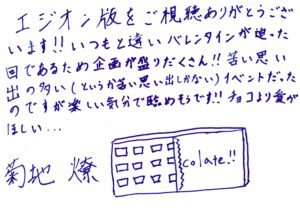 エジオン版をご視聴ありがとうござい
います!!いつもと違いバレンタインが迫った
回であるため企画が盛りだくさん!!苦い思い
出の多い(というか苦い思い出しかない)イベントだった
のですが楽しい気分で臨めそうです!!チョコより愛が
ほしい…
菊地 燎
colate!!